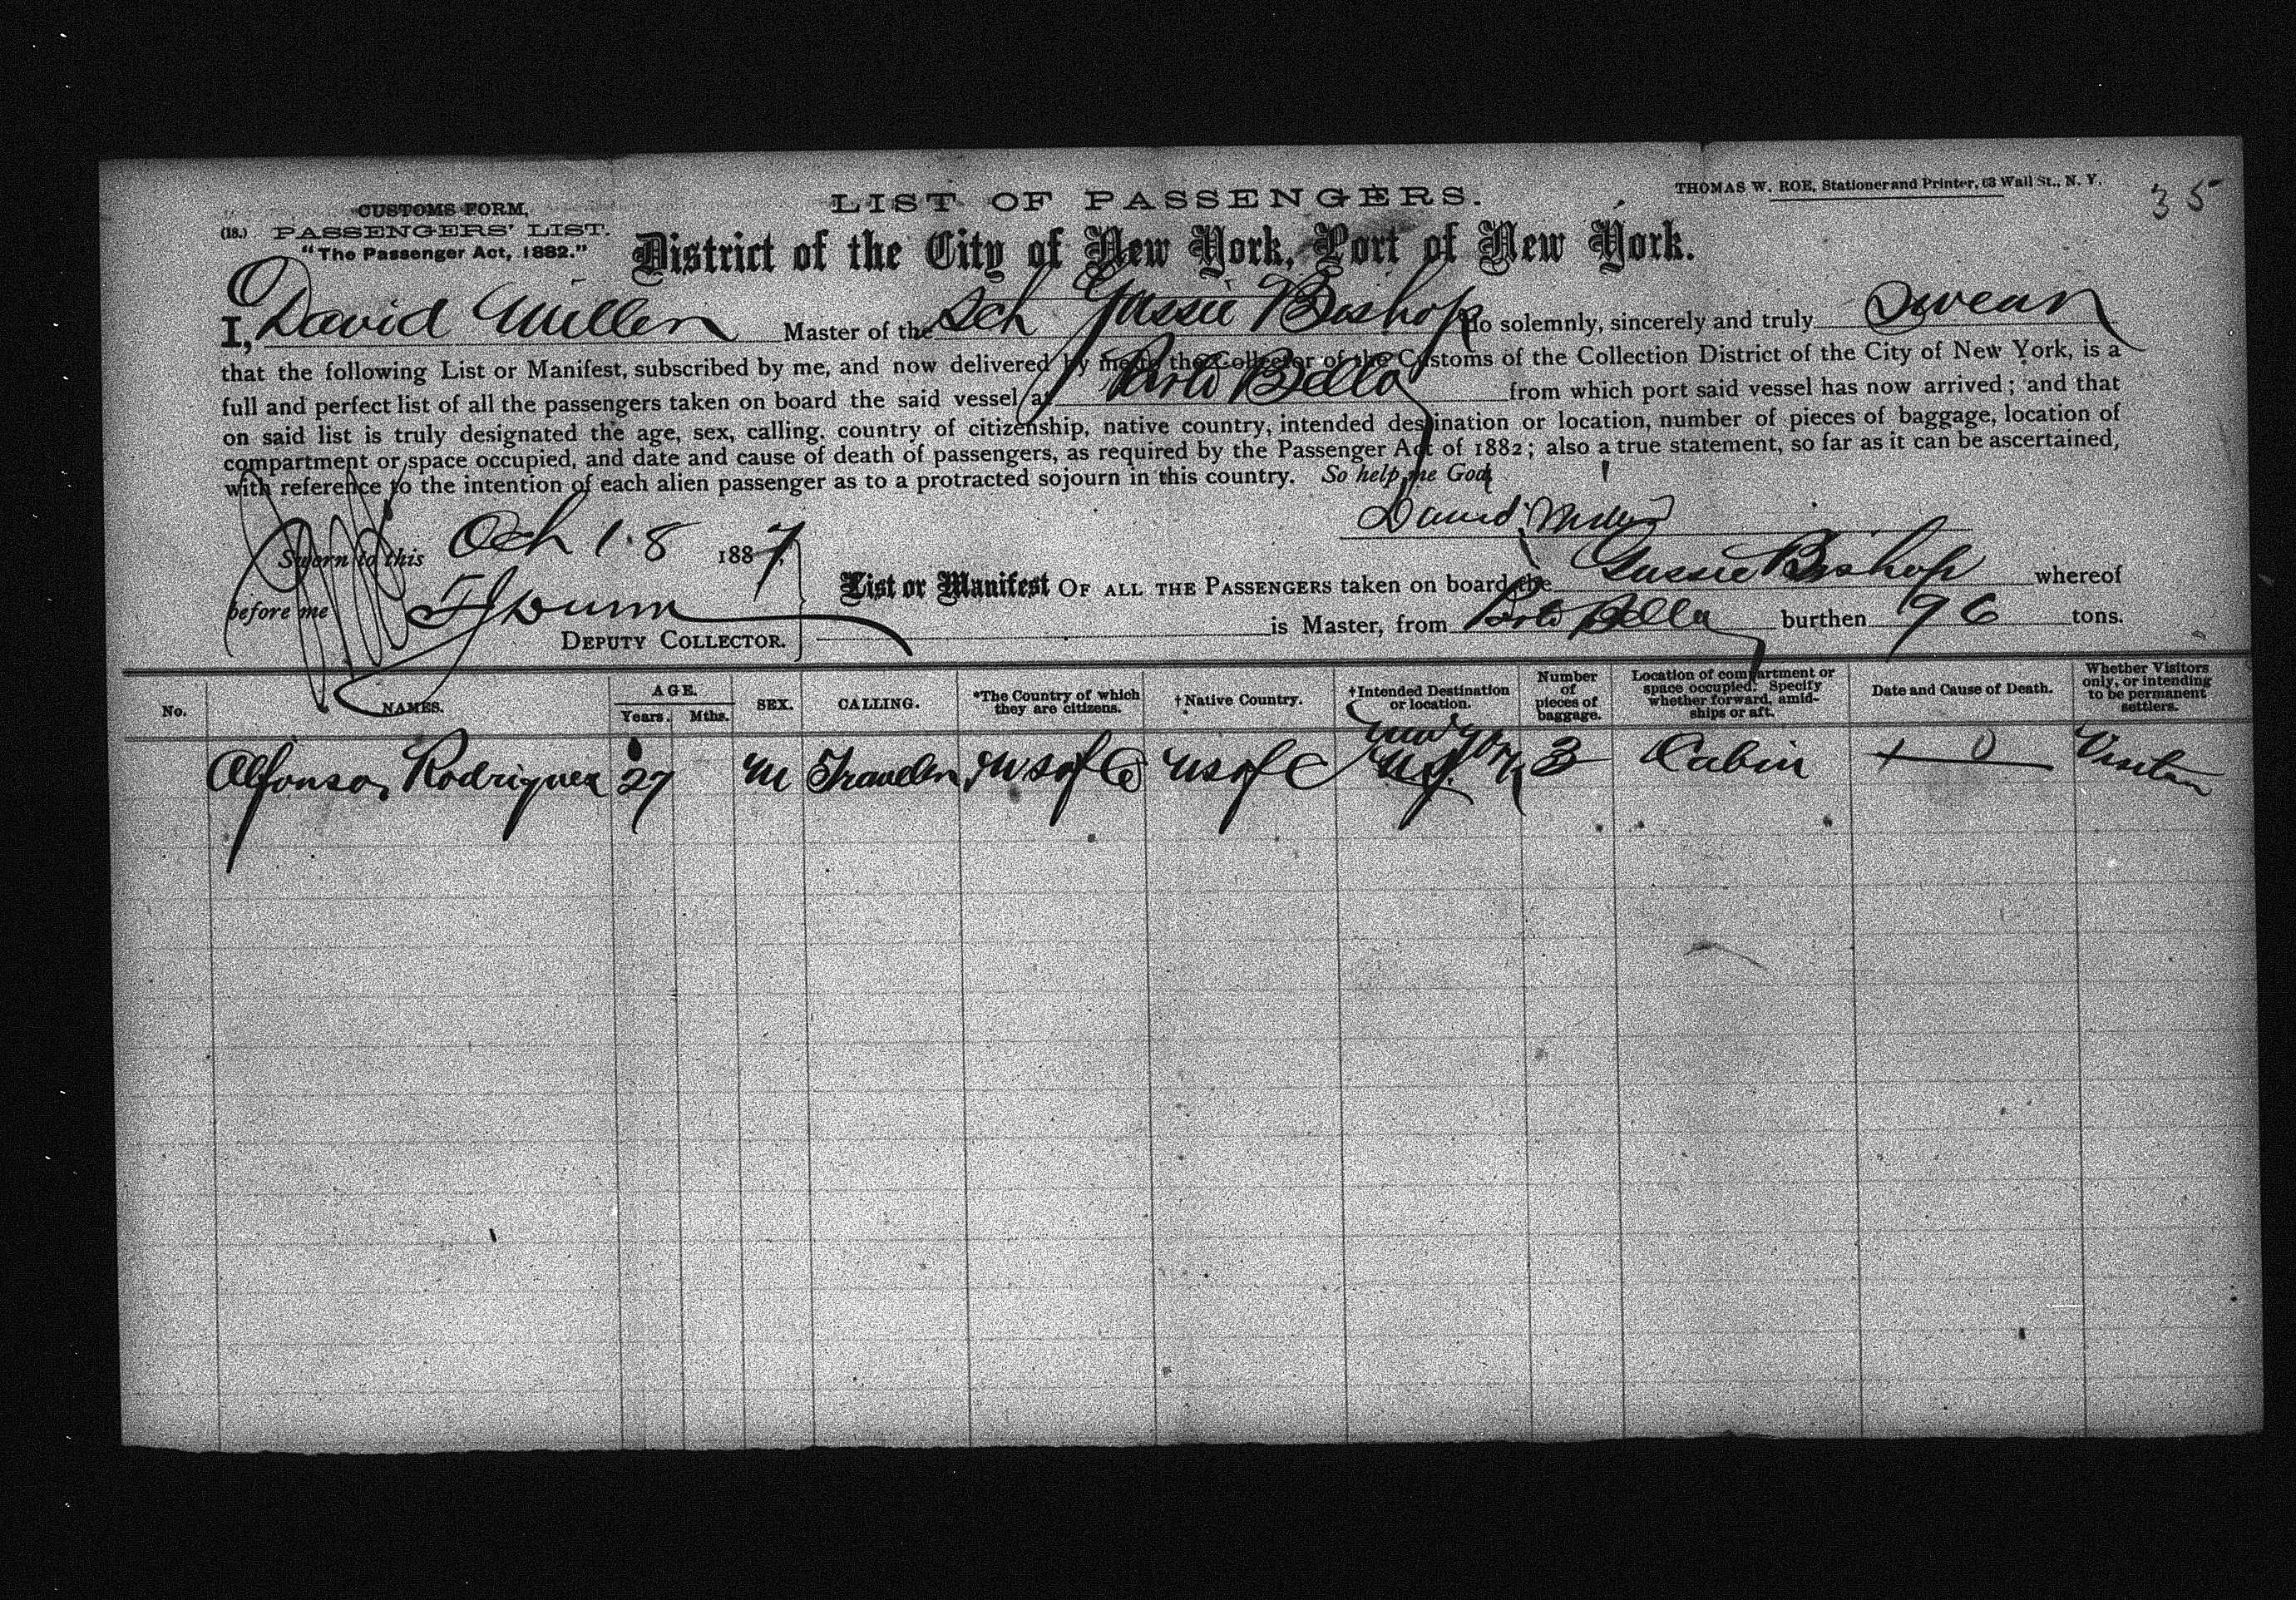 LIST OF PASSENGERS.
THOMAS W. ROE, Stationer and Printer, 63 Wall St., N. Y.
35
CUSTOMS FORM,
(18.) PASSENGERS' LIST.
"The Passenger Act, 1882."
District of the City of New York, Port of New York.
I, David Miller Master of the Sch Gussie Bishop do solemnly, sincerely and truly Swear
that the following List or Manifest, subscribed by me, and now delivered by me to the Collector of the Customs of the Collection District of the City of New York, is a
full and perfect list of all the passengers taken on board the said vessel at Porto Bello from which port said vessel has now arrived; and that
on said list is truly designated the age, sex, calling, country of citizenship, native country, intended destination or location, number of pieces of baggage, location of
compartment or space occupied, and date and cause of death of passengers, as required by the Passenger Act of 1882; also a true statement, so far as it can be ascertained,
with reference to the intention of each alien passenger as to a protracted sojourn in this country. So help me God
David Miller
Sworn to this Oct 18 1887,
before me Dunn
DEPUTY COLLECTOR.
List or Manifest OF ALL THE PASSENGERS taken on board the Gussie Bishop whereof
is Master, from Porto Bello burthen 96 tons.
No. NAMES. AGE. Years. Mths. SEX. CALLING. *The Country of which they are citizens. †Native Country. †Intended Destination or location. Number of pieces of baggage. Location of compartment or space occupied. Specify whether forward, amidships or aft. Date and Cause of Death. Whether Visitors only, or intending to be permanent settlers.
Alfonso Rodriguez 27 M Traveler U S of C U S of C New York 3 Cabin Visitor